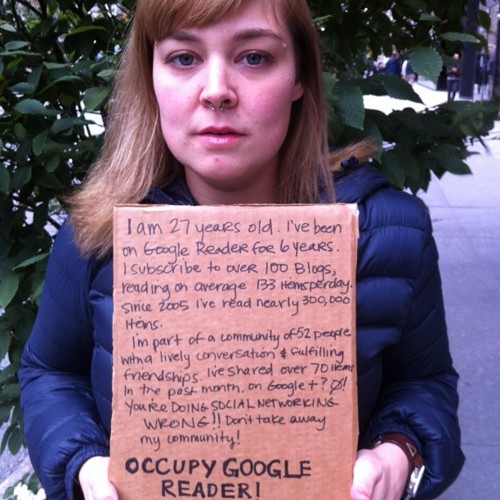 I am 27 years old. I've been
on Google Reader for 6 years.
I subscribe to over 100 Blogs,
reading on average 133 items per day.
Since 2005 I've read nearly 300,000
items.
I'm part of a community of 52 people
with a lively conversation & fulfilling
friendships. I've shared over 70 items
in the past month. on Google+? Ø!
YOU'RE DOING SOCIAL NETWORKING
WRONG!! Don't take away
my community!
OCCUPY GOOGLE
READER!